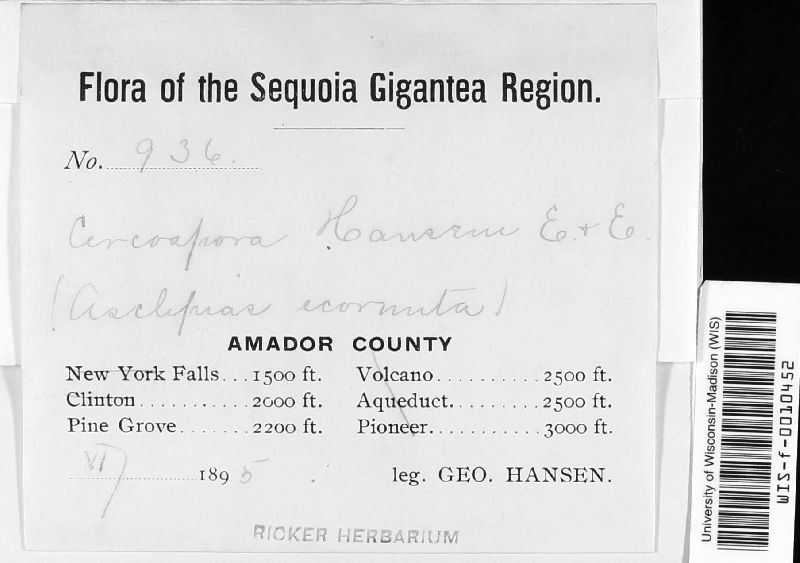 Flora of the Sequoia Gigantea Region.
No. 936.
Cercospora Hansenii E. + E.
(Asclepias ecornuta)
AMADOR COUNTY
New York Falls...1500 ft. Volcano..........2500 ft.
Clinton...........2000 ft. Aqueduct.........2500 ft.
Pine Grove.......2200 ft. Pioneer...........3000 ft.
VI 1895 leg. GEO. HANSEN.
RICKER HERBARIUM
University of Wisconsin-Madison (WIS)
WIS-f-0010452